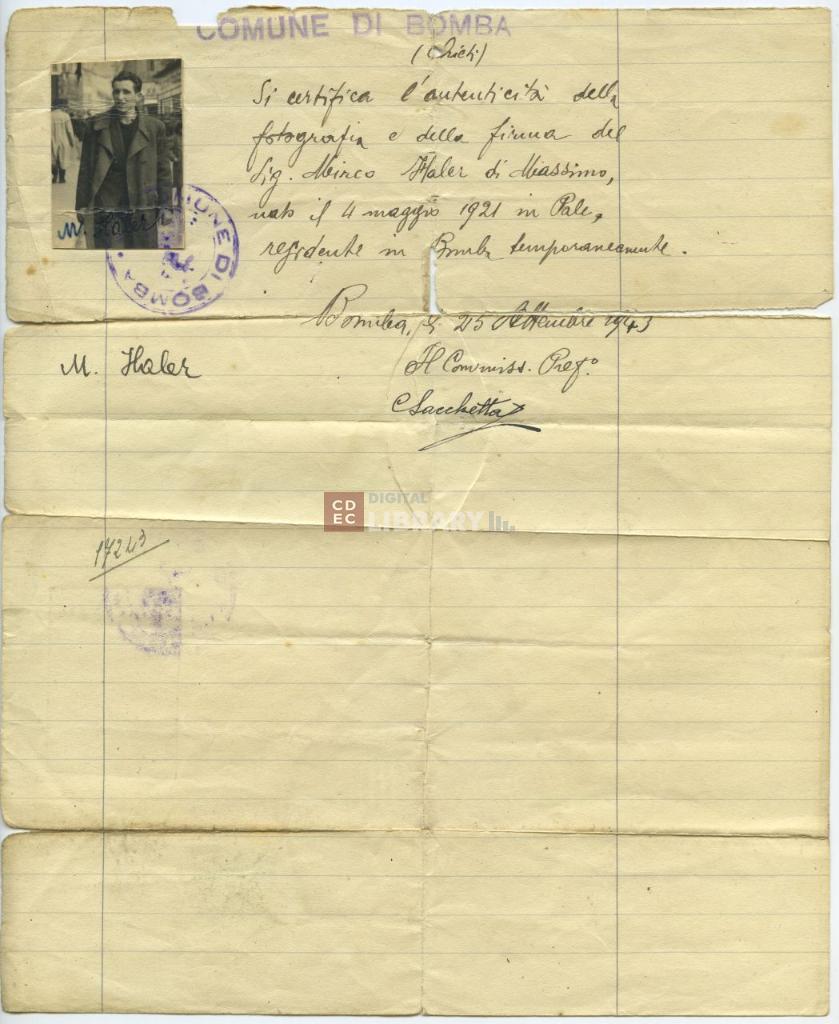 COMUNE DI BOMBA
(Chieti)
Si certifica l'autenticità della
fotografia e della firma del
Sig. Mirco Haler di Massimo,
nato il 4 maggio 1921 in Pale,
residente in Bomba temporaneamente.
M. Haler
COMUNE DI BOMBA
Bomba, li 25 Settembre 1943
M. Haler
Il Commiss. Pref.o
C Sacchetta
CDEC DIGITAL LIBRARY
17243